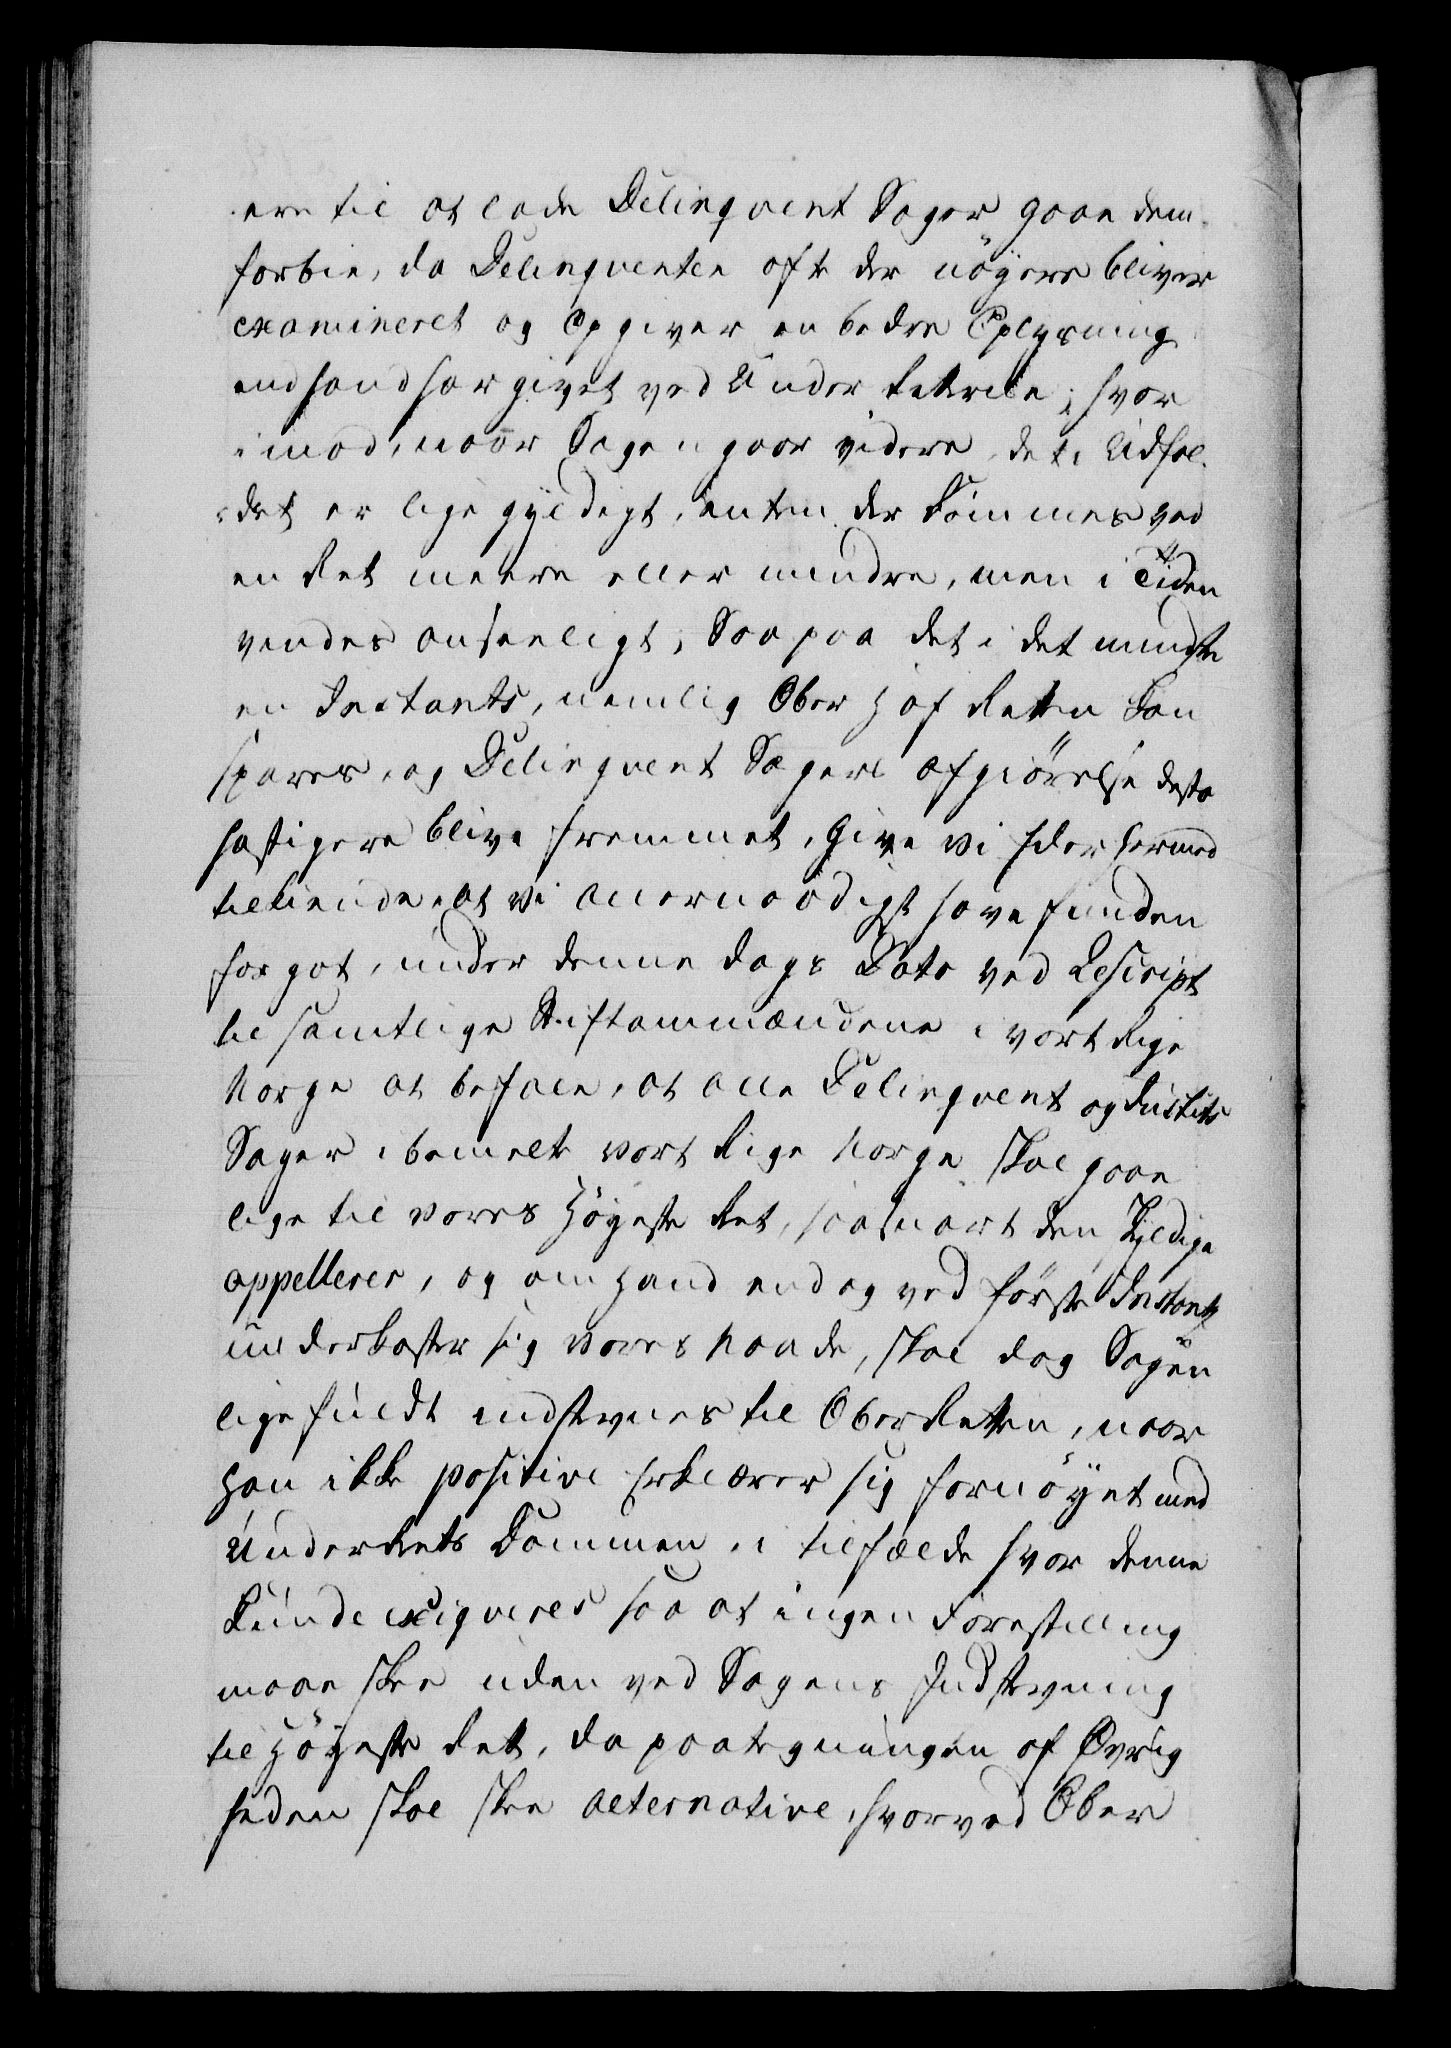 ere til at lade Delinqvent Sager gaae dem
forbie, da Delinqventen ofte der nöyere bliver
examineret og Opgiver en bedre Oplysning
end hand har givet ved Under Retterne; hvor
imod, naar Sagen gaar videre, det i Udfal-
det er lige gyldigt, enten der Dömmes ved
en Ret meere eller mindre, men i Tiden
vindes anseeligt, Saa paa det i det mindste
en Instants, nemlig Ober Hof Retten kan
spares, og Delinqvent Sagers Afgiörelse desto
hastigere blive fremmet, Give vi Eder hermed
tilkiende, at vi Allernaadigst have funden
for got, under denne Dags Dato ved Rescript
til samtlige Stiftammændene i vort Rige
Norge at befale, at alle Delinqvent og Justits
Sager i bemelte vort Rige Norge skal gaae
lige til vores Höyeste Ret, saasnart den Skyldige
appellerer, og om hand endog ved förste Instants
underkaster sig vores Naade, skal dog Sagen
ligefuldt indstevnes til OberRetten, naar
han ikke positive Erklærer sig fornöyet med
UnderRets Dommen, i tilfælde hvor denne
Kunde exeqveres saa at ingen Forestilling
maae skee uden ved Sagens Indstevning
til Höyeste Ret, da paategningen af Övrig
heden skal skee alternative, hvorved Ober